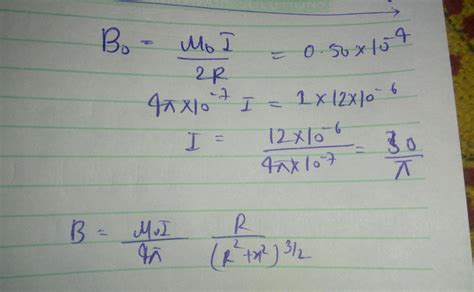 B₀ = μ₀I / 2R = 0.50 × 10⁻⁴
4π×10⁻⁷ I = 1 × 12×10⁻⁶
I = 12×10⁻⁶ / 4π×10⁻⁷ = 30 / π
B = μ₀I / 4π R / (R²+x²)³/²